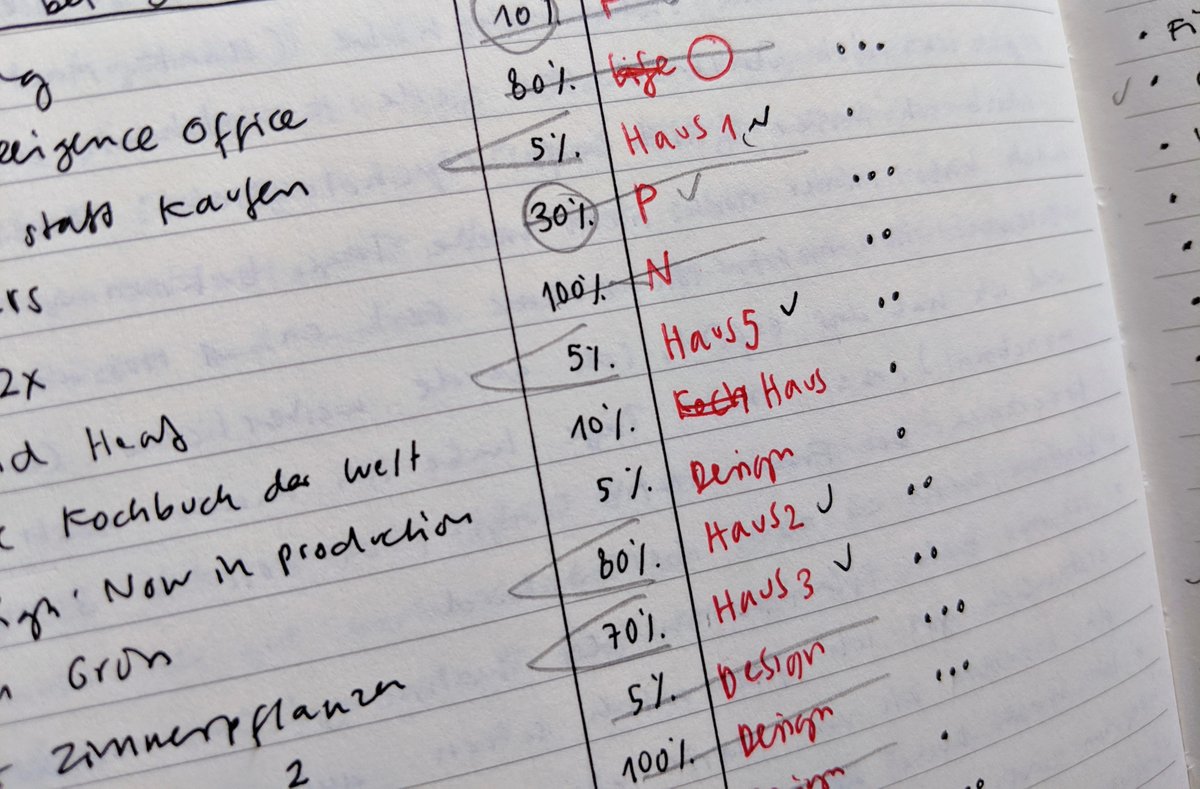 10%
80% Life
Office 5% Haus 1.
statt Kaufen 30% P
100% N
2x 5% Haus 5
Heat 10% Haus
Kochbuch der Welt 5% Design
Now in production 80% Haus 2
Grün 70% Haus 3
Zimmerpflanzen 5% Design
2 100% Design